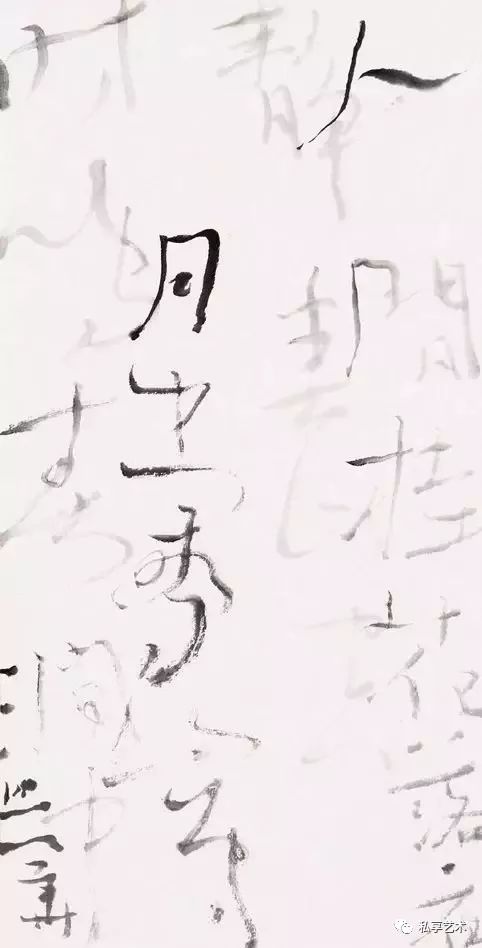 人閒桂花落夜
靜春山空
月出驚山鳥
時鳴春澗中
私享艺术